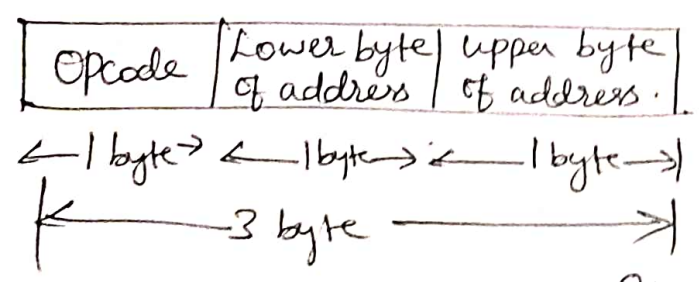 Opcode
Lower byte
of address
upper byte
of address.
1 byte
1 byte
1 byte
3 byte